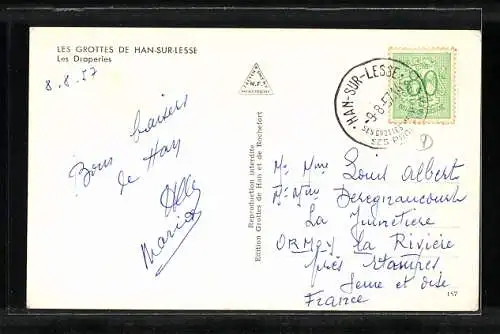 LES GROTTES DE HAN-SUR-LESSE
Les Draperies
8.8.57
Bons baisers
de Han
Maria
Reproduction interdite
Edition Grottes de Han et de Rochefort
HAN-SUR-LESSE
-8-8-57
SES GROTTES
60
Mr Mme Louis Albert
Mr Mme Deregnaucourt
La
ORMOY la RIVIÈRE
près Etampes
Seine et oise
France
157